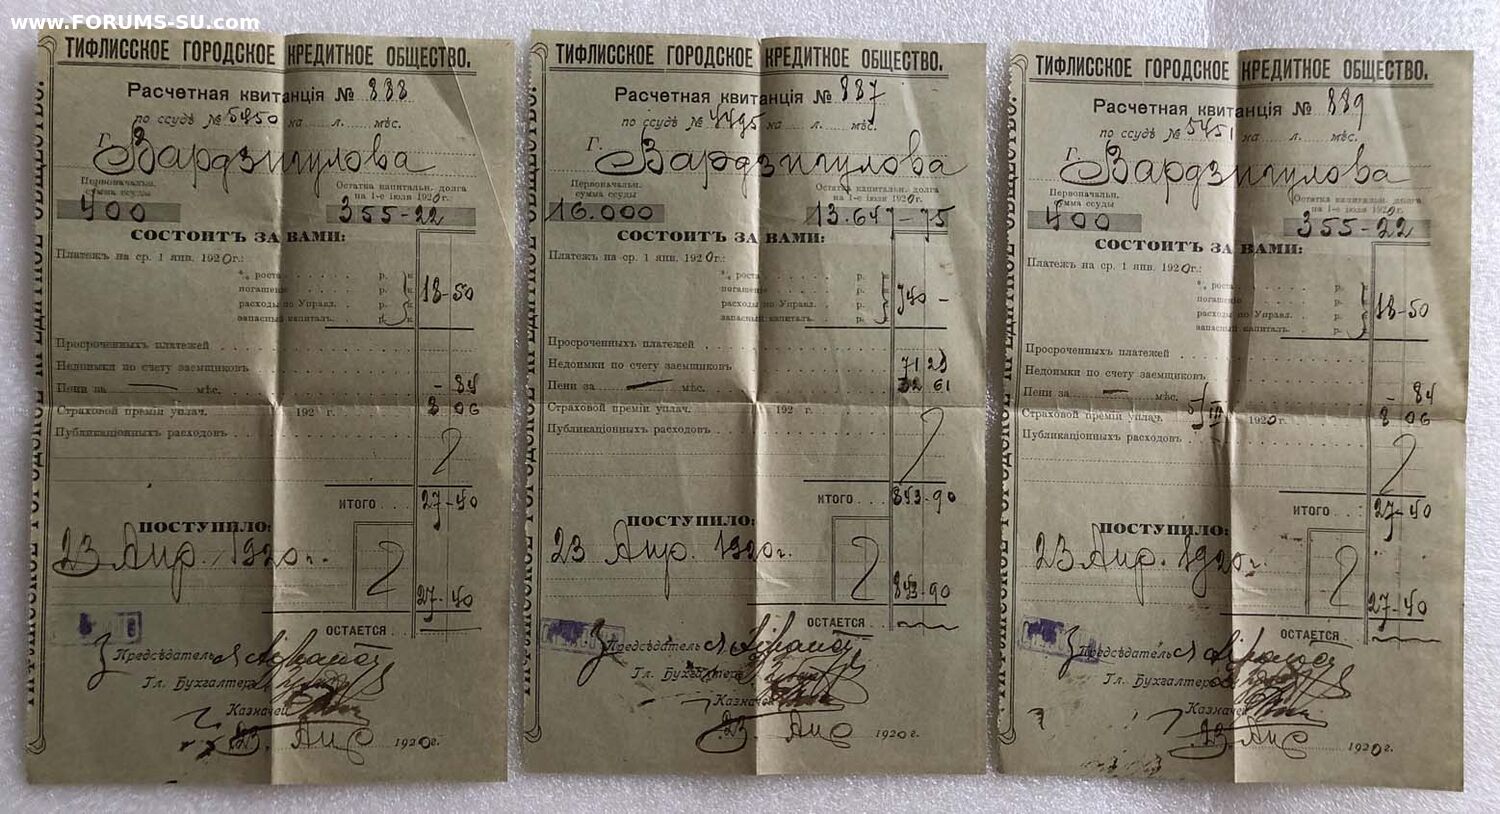 www.FORUMS-SU.com
ТИФЛИССКОЕ ГОРОДСКОЕ КРЕДИТНОЕ ОБЩЕСТВО.
Расчетная квитанція № 888
по ссудѣ № 5450 на л. мѣс.
Г. Вардзигулова
Первоначальн. сумма ссуды
Остатка капитальн. долга на 1-е іюля 1920г.
400 355-22
СОСТОИТЪ ЗА ВАМИ:
Платежъ на ср. 1 янв. 1920г.:
% роста р. к.
погашенія р. к.
расходы по Управл. р. к. 18-50
запасный капиталъ р. к.
Просроченныхъ платежей
Недоимки по счету заемщиковъ
Пени за — мѣс. - 84
Страховой преміи уплач. 192 г. 8 06
Публикаціонныхъ расходовъ
ИТОГО 27-40
ПОСТУПИЛО:
23 Апр. 1920г.
27-40
ОСТАЕТСЯ
Предсѣдатель
Гл. Бухгалтеръ
Казначей
23 Апр 1920г.
ТИФЛИССКОЕ ГОРОДСКОЕ КРЕДИТНОЕ ОБЩЕСТВО.
Расчетная квитанція № 887
по ссудѣ № 4495 на л. мѣс.
Г. Вардзигулова
Первоначальн. сумма ссуды
Остатка капитальн. долга на 1-е іюля 1920г.
16.000 13.647-75
СОСТОИТЪ ЗА ВАМИ:
Платежъ на ср. 1 янв. 1920г.:
% роста р. к.
погашенія р. к.
расходы по Управл. р. к. 740 -
запасный капиталъ р. к.
Просроченныхъ платежей
Недоимки по счету заемщиковъ 71 29
Пени за — мѣс. 32 61
Страховой преміи уплач. 192 г.
Публикаціонныхъ расходовъ
ИТОГО 843-90
ПОСТУПИЛО:
23 Апр. 1920г.
843-90
ОСТАЕТСЯ
Предсѣдатель
Гл. Бухгалтеръ
Казначей
23 Апр 1920г.
ТИФЛИССКОЕ ГОРОДСКОЕ КРЕДИТНОЕ ОБЩЕСТВО.
Расчетная квитанція № 889
по ссудѣ № 5451 на л. мѣс.
Г. Вардзигулова
Первоначальн. сумма ссуды
Остатка капитальн. долга на 1-е іюля 1920г.
400 355-22
СОСТОИТЪ ЗА ВАМИ:
Платежъ на ср. 1 янв. 1920г.:
% роста р. к.
погашенія р. к.
расходы по Управл. р. к. 18-50
запасный капиталъ р. к.
Просроченныхъ платежей
Недоимки по счету заемщиковъ
Пени за — мѣс. - 84
Страховой преміи уплач. 5/III 1920г. 8 06
Публикаціонныхъ расходовъ
ИТОГО 27-40
ПОСТУПИЛО:
23 Апр. 1920г.
27-40
ОСТАЕТСЯ
Предсѣдатель
Гл. Бухгалтеръ
Казначей
23 Апр 1920г.